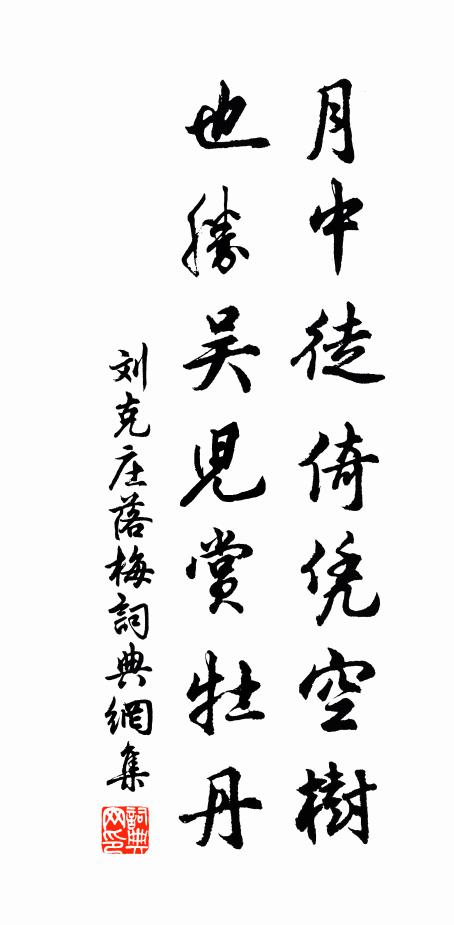 月中徒倚凭空樹
也勝吴兒賞牡丹
刘克庄落梅詞典網集
詞典网印